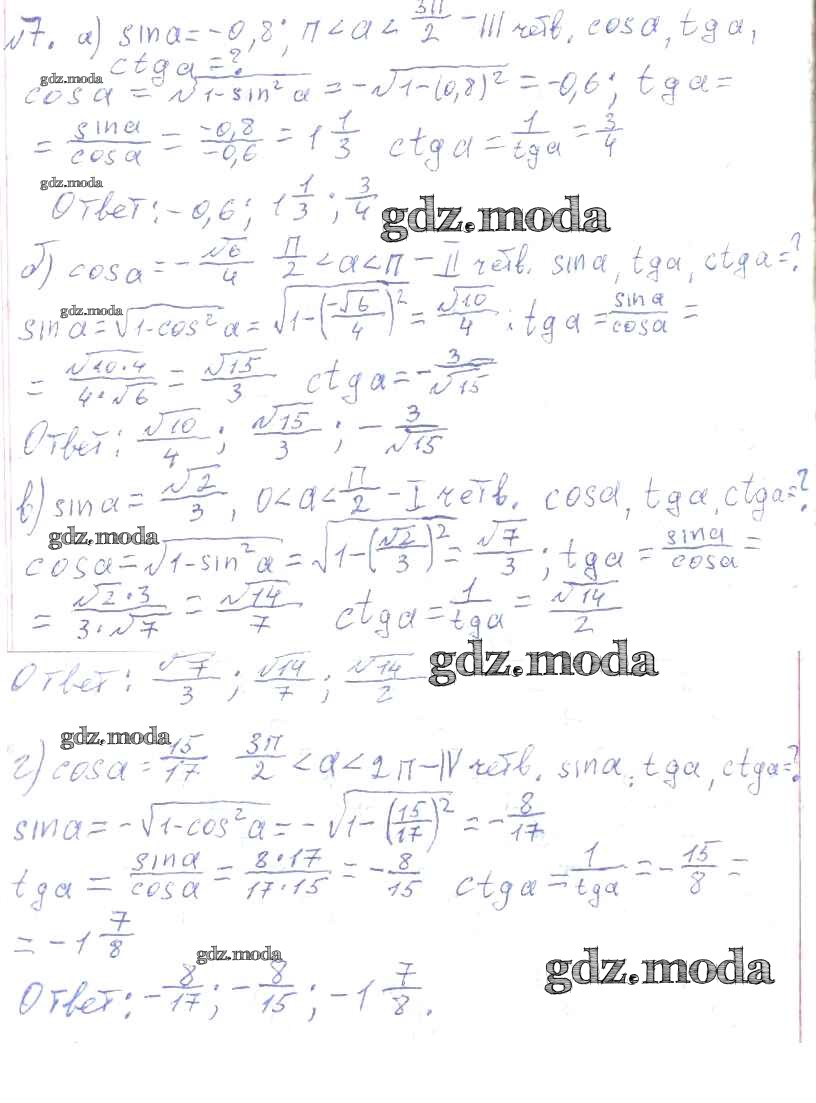 №7. а) sin a = -0,8; π < a < 3π/2 - III четв. cos a, tg a,
ctg a = ?
gdz.moda
cos a = √(1-sin² a) = -√(1-(0,8)²) = -0,6; tg a =
= sin a/cos a = -0,8/-0,6 = 1 1/3 ctg a = 1/tg a = 3/4
gdz.moda
Ответ: -0,6; 1 1/3; 3/4
gdz.moda
б) cos a = -√6/4 π/2 < a < π - II четв. sin a, tg a, ctg a = ?
gdz.moda
sin a = √(1-cos² a) = √(1-(-√6/4)²) = √10/4; tg a = sin a/cos a =
= √10·4/4·√6 = √15/3 ctg a = -3/√15
Ответ: √10/4; √15/3; -3/√15
в) sin a = √2/3, 0 < a < π/2 - I четв. cos a, tg a, ctg a = ?
gdz.moda
cos a = √(1-sin² a) = √(1-(√2/3)²) = √7/3; tg a = sin a/cos a =
= √2·3/3·√7 = √14/7 ctg a = 1/tg a = √14/2
Ответ: √7/3; √14/7; √14/2
gdz.moda
gdz.moda
г) cos a = 15/17 3π/2 < a < 2π - IV четв. sin a, tg a, ctg a = ?
sin a = -√(1-cos² a) = -√(1-(15/17)²) = -8/17
tg a = sin a/cos a = 8·17/17·15 = -8/15 ctg a = 1/tg a = -15/8 =
= -1 7/8
gdz.moda
gdz.moda
Ответ: -8/17; -8/15; -1 7/8.